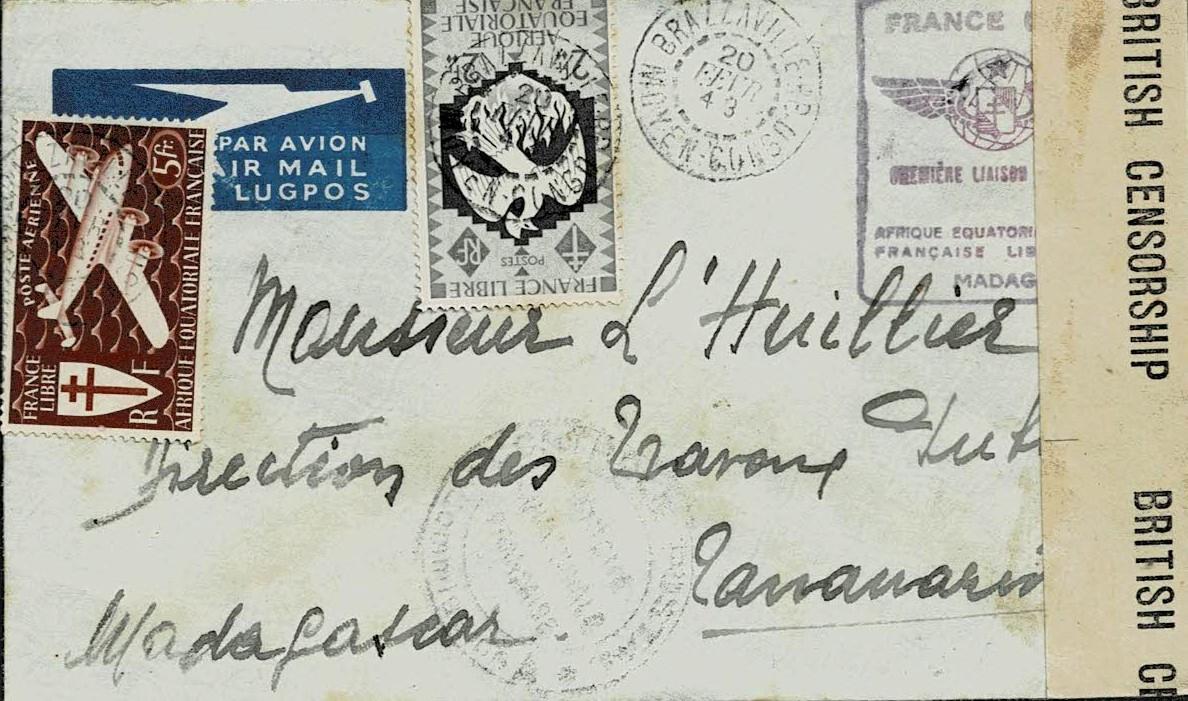 PAR AVION
AIR MAIL
LUGPOS
POSTE AÉRIENNE
5fr.
FRANCE
LIBRE
RF
AFRIQUE EQUATORIALE FRANÇAISE
AFRIQUE
EQUATORIALE
FRANÇAISE
RF
POSTES
FRANCE LIBRE
BRAZZAVILLE-R.P.
20
FEVR
43
MOYEN CONGO
FRANCE
PREMIÈRE LIAISON
AFRIQUE EQUATORI
FRANÇAISE LIB
MADAG
BRITISH CENSORSHIP
BRITISH CE
Monsieur L'Huillier
Direction des Travaux Pub
Tananariv
Madagascar